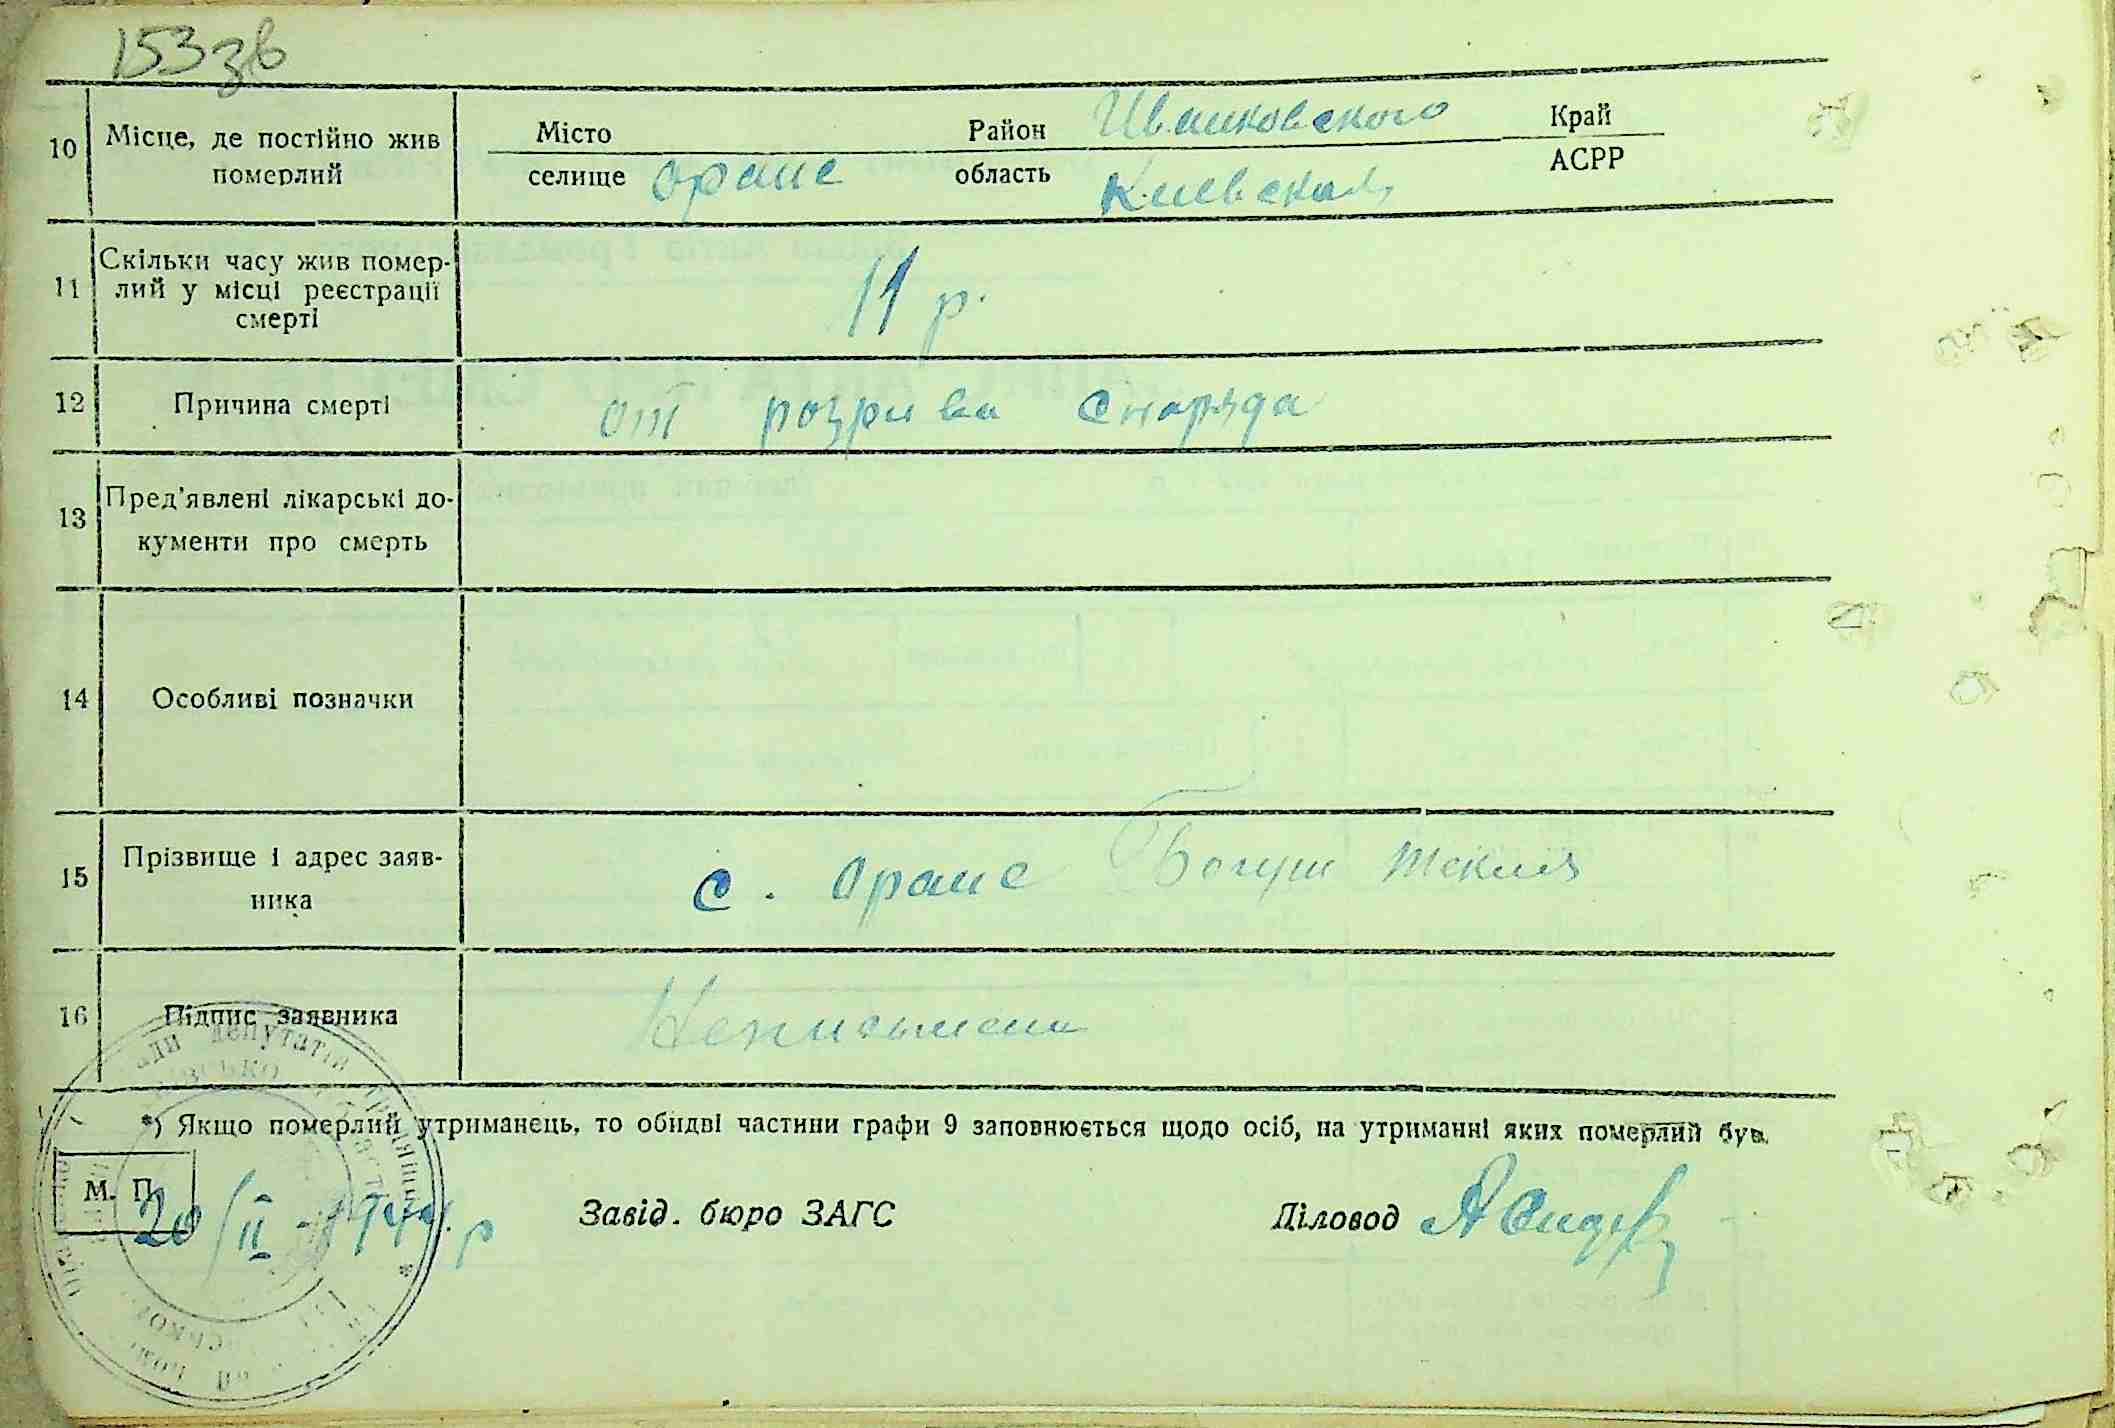 153зв
10 Місце, де постійно жив померлий
Місто Район Иванковского Край
селище Оране область Киевская АСРР
11 Скільки часу жив помер-
лий у місці реєстрації
смерті
11 р.
12 Причина смерті от розрива снаряда
13 Пред'явлені лікарські до-
кументи про смерть
14 Особливі позначки
15 Прізвище і адрес заяв-
ника
с. Оране Богуш Текля
16 Підпис заявника
*) Якщо померлий утриманець, то обидві частини графи 9 заповнюється щодо осіб, на утриманні яких померлий був.
М. П.
20/II-1944 р
Завід. бюро ЗАГС Діловод